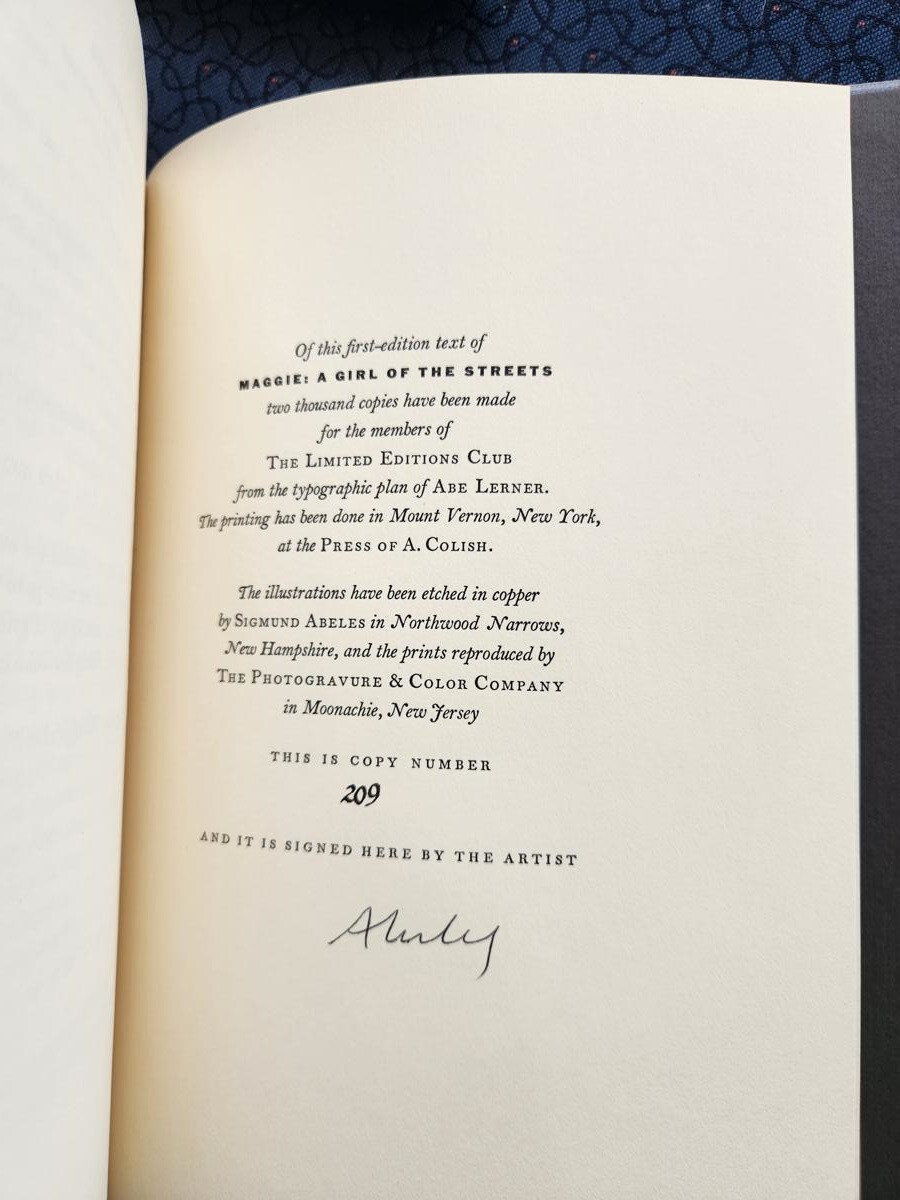 Of this first-edition text of
MAGGIE: A GIRL OF THE STREETS
two thousand copies have been made
for the members of
THE LIMITED EDITIONS CLUB
from the typographic plan of ABE LERNER.
The printing has been done in Mount Vernon, New York,
at the PRESS OF A. COLISH.
The illustrations have been etched in copper
by SIGMUND ABELES in Northwood Narrows,
New Hampshire, and the prints reproduced by
THE PHOTOGRAVURE & COLOR COMPANY
in Moonachie, New Jersey
THIS IS COPY NUMBER
209
AND IT IS SIGNED HERE BY THE ARTIST